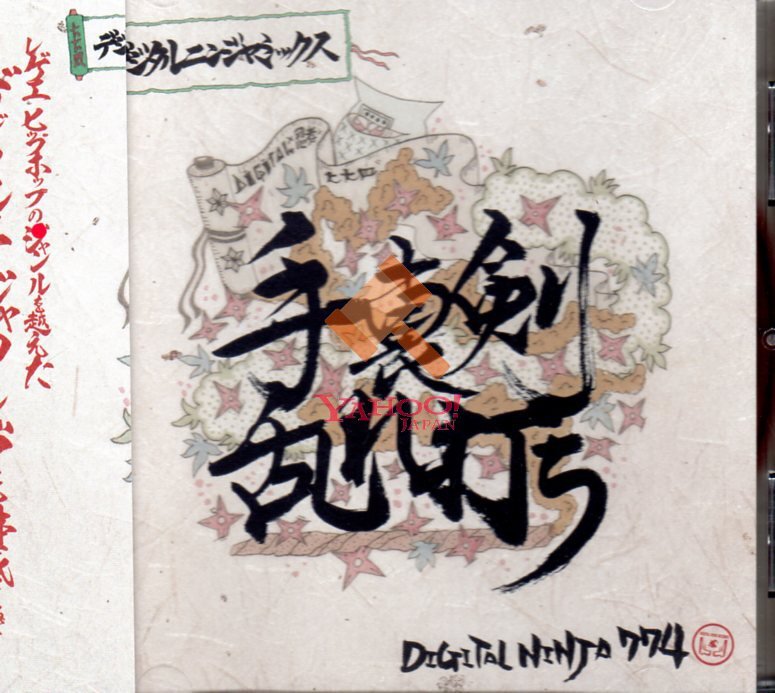 レゲエ・ヒップホップのジャンルを越えた
七七四
デジタルニンジャミックス
DIGITAL忍者
七七四
手裏剣
乱れ打ち
YAHOO!
JAPAN
DIGITAL NINJA 774